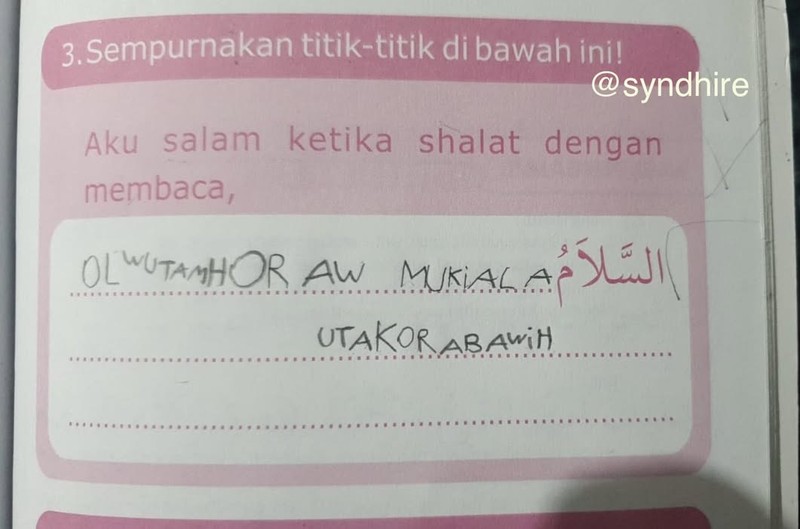 3. Sempurnakan titik-titik di bawah ini!
@syndhire
Aku salam ketika shalat dengan
membaca,
السَّلاَمُ OLWUTAMHOR AW MUKiALA
UTAKORABAWiH